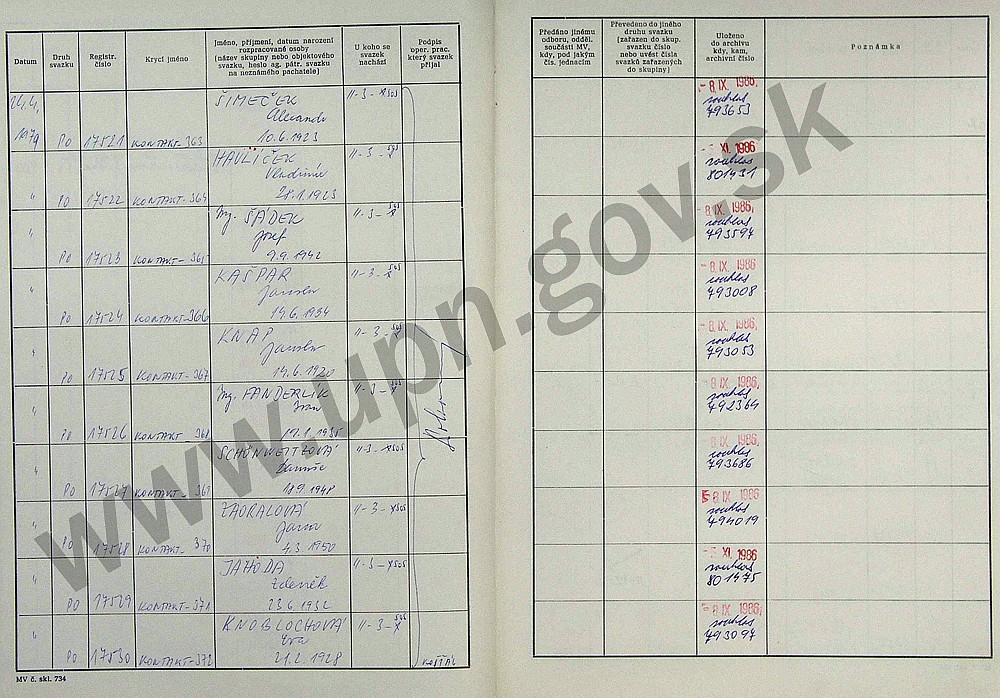 Datum
Druh svazku
Registr. číslo
Krycí jméno
Jméno, příjmení, datum narození rozpracované osoby (název skupiny nebo objektového svazku, heslo ag. pátr. svazku na neznámého pachatele)
U koho se svazek nachází
Podpis oper. prac. který svazek přijal
Předáno jinému odboru, odděl. součásti MV, kdy, pod jakým čís. jednacím
Převedeno do jiného druhu svazku (zařazen do skup. svazku číslo nebo uvést čísla svazků zařazených do skupiny)
Uloženo do archivu kdy, kam, archivní číslo
Poznámka
1979 PO 17521 KONTAKT-363 ŠIMEČEK 10.6.1923 II-3-X505 -8. IX. 1986 souhlas 793653
" PO 17522 KONTAKT-364 HAVLÍČEK Vladimír 28.1.1923 II-3- XI. 1986 souhlas 801431
" PO 17523 KONTAKT-365 Ing. ŠÁDEK Josef 9.9.1942 II-3- -8. IX. 1986 souhlas 793597
" PO 17524 KONTAKT-366 KAŠPAR Jaroslav 19.6.1934 II-3- -8. IX. 1986 souhlas 793008
" PO 17525 KONTAKT-367 KNAP Jaroslav 14.6.1920 II-3- -8. IX. 1986 souhlas 793053
" PO 17526 KONTAKT-368 Ing. FANDERLIK Ivan 1935 II-3- -8. IX. 1986 souhlas 792364
" PO 17527 KONTAKT-369 18.9.1948 II-3-X505 -8. IX. 1986 souhlas 793686
" PO 17528 KONTAKT-370 ZAORALOVÁ 4.3.1950 II-3-X505 8. IX. 1986 souhlas 494019
" PO 17529 KONTAKT-371 JAHODA Zdeněk 23.6.1932 II-3-X505 XI. 1986 souhlas 801475
" PO 17530 KONTAKT-372 KNOBLOCHOVÁ Eva 21.2.1928 II-3- KOŠŤÁL -8. IX. 1986 souhlas 793097
MV č. skl. 734
www.upn.gov.sk